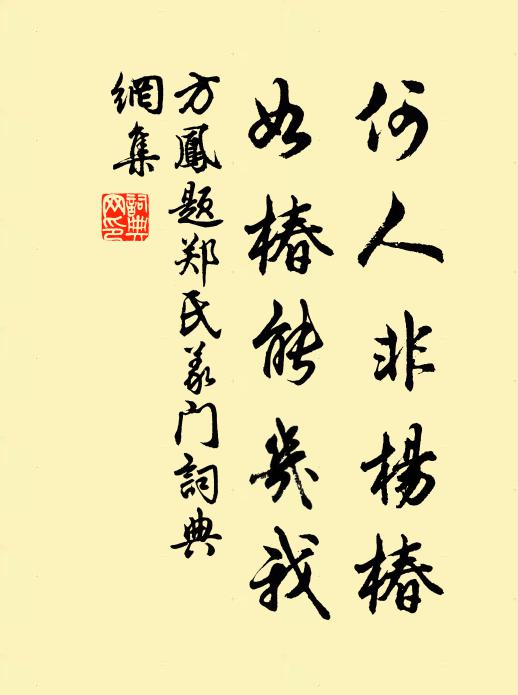 何人非楊椿
如椿能幾我
方鳳題郑氏義门詞典
網集
詞典網印